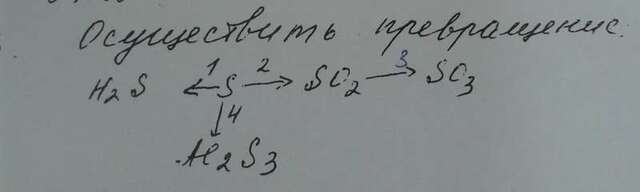 Осуществить превращение:
H2S ←1 S 2→ SO2 3→ SO3
↓4
Al2S3